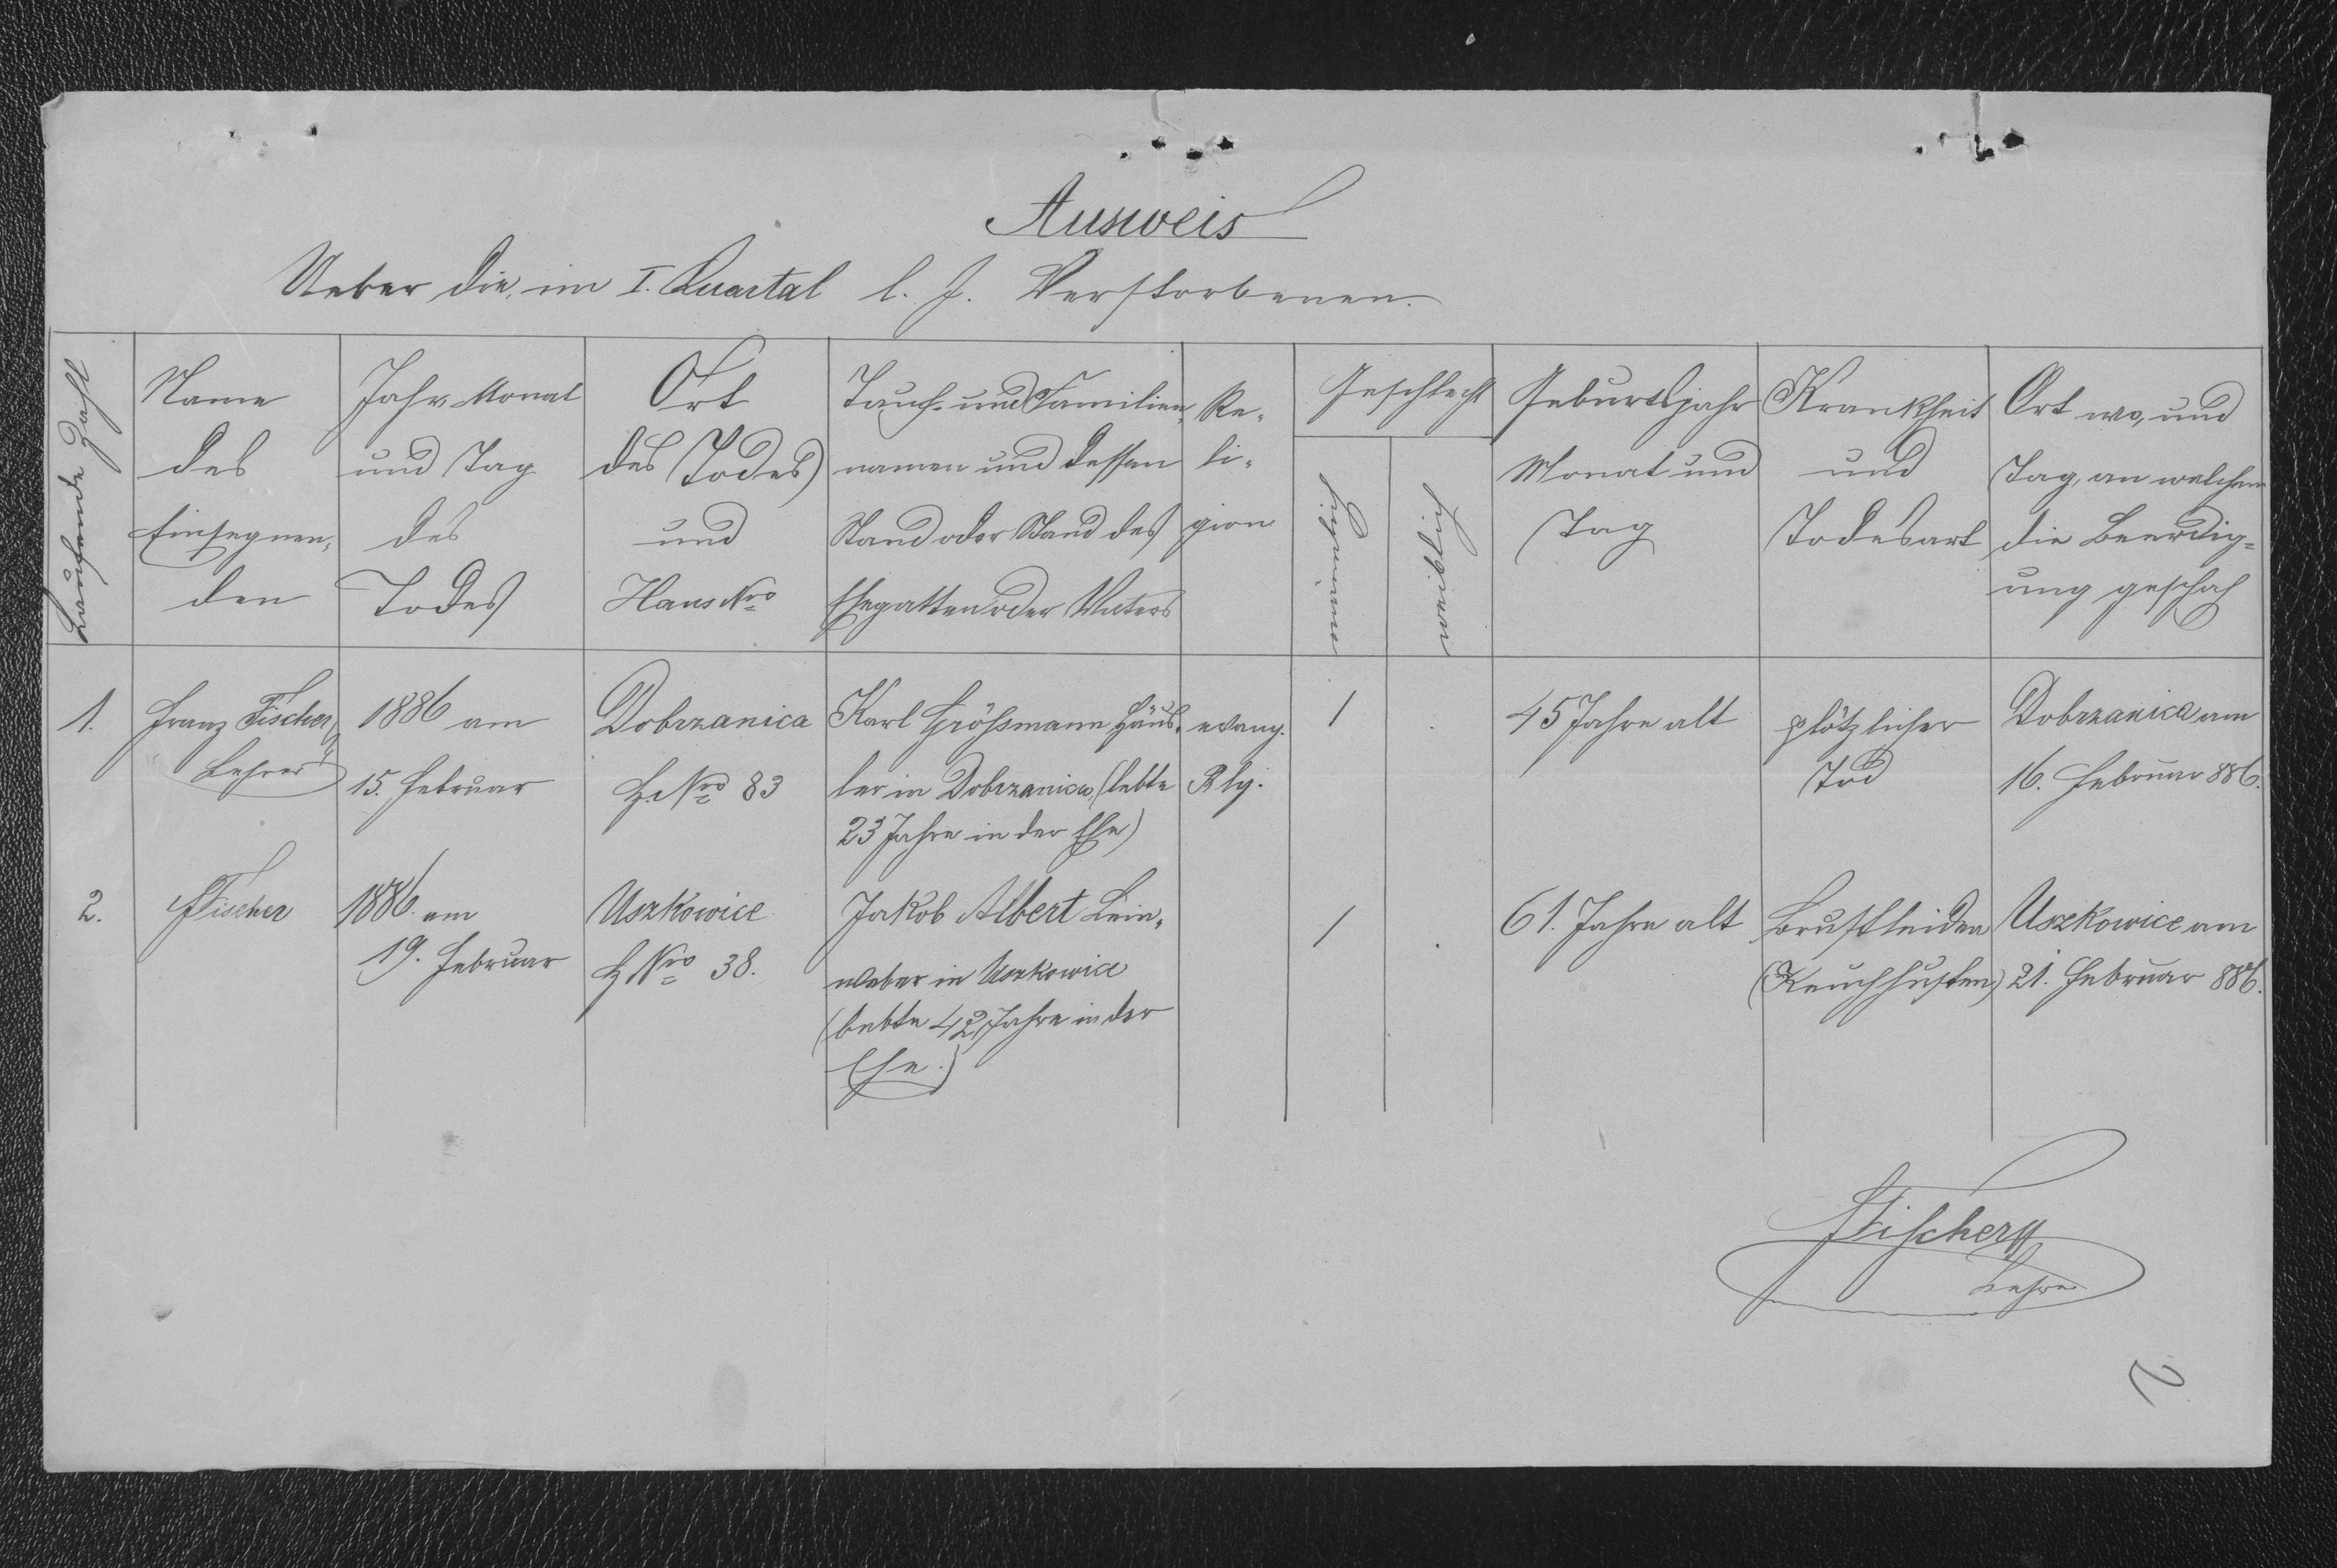 Ausweis
Ueber die, im I. Quartal l. J. Verstorbenen.
Laufende Zahl
Name
des
Einsegnen-
den
Jahr Monat
und Tag
des
Todes
Ort
des Todes
und
Haus Nro
Tauf- und Familien-
namen und dessen
Stand oder Stand des
Ehegatten oder Vaters
Re-
li-
gion
Geschlecht
männlich
weiblich
Geburtsjahr
Monat und
Tag
Krankheit
und
Todesart
Ort wo, und
Tag, an welchem
die Beerdig-
ung geschah
1.
Franz Fischer
Lehrer
1886 am
15. Februar
Dobrzanica
H. Nro 83
Karl Größmann Häus-
ler in Dobrzanica, (lebte
23 Jahre in der Ehe)
evang.
Rlg.
1
45 Jahre alt
plötzlicher
Tod
Dobrzanica am
16. Februar 886.
2.
FFischer
1886. am
19. Februar
Uszkowice
H Nro 38.
Jakob Albert Lein-
weber in Uszkowice
(lebte 42 Jahre in der
Ehe.)
1
61. Jahre alt
Brustleiden
(Keuchhusten)
Uszkowice am
21. Februar 886.
FFischer
Lehrer
2